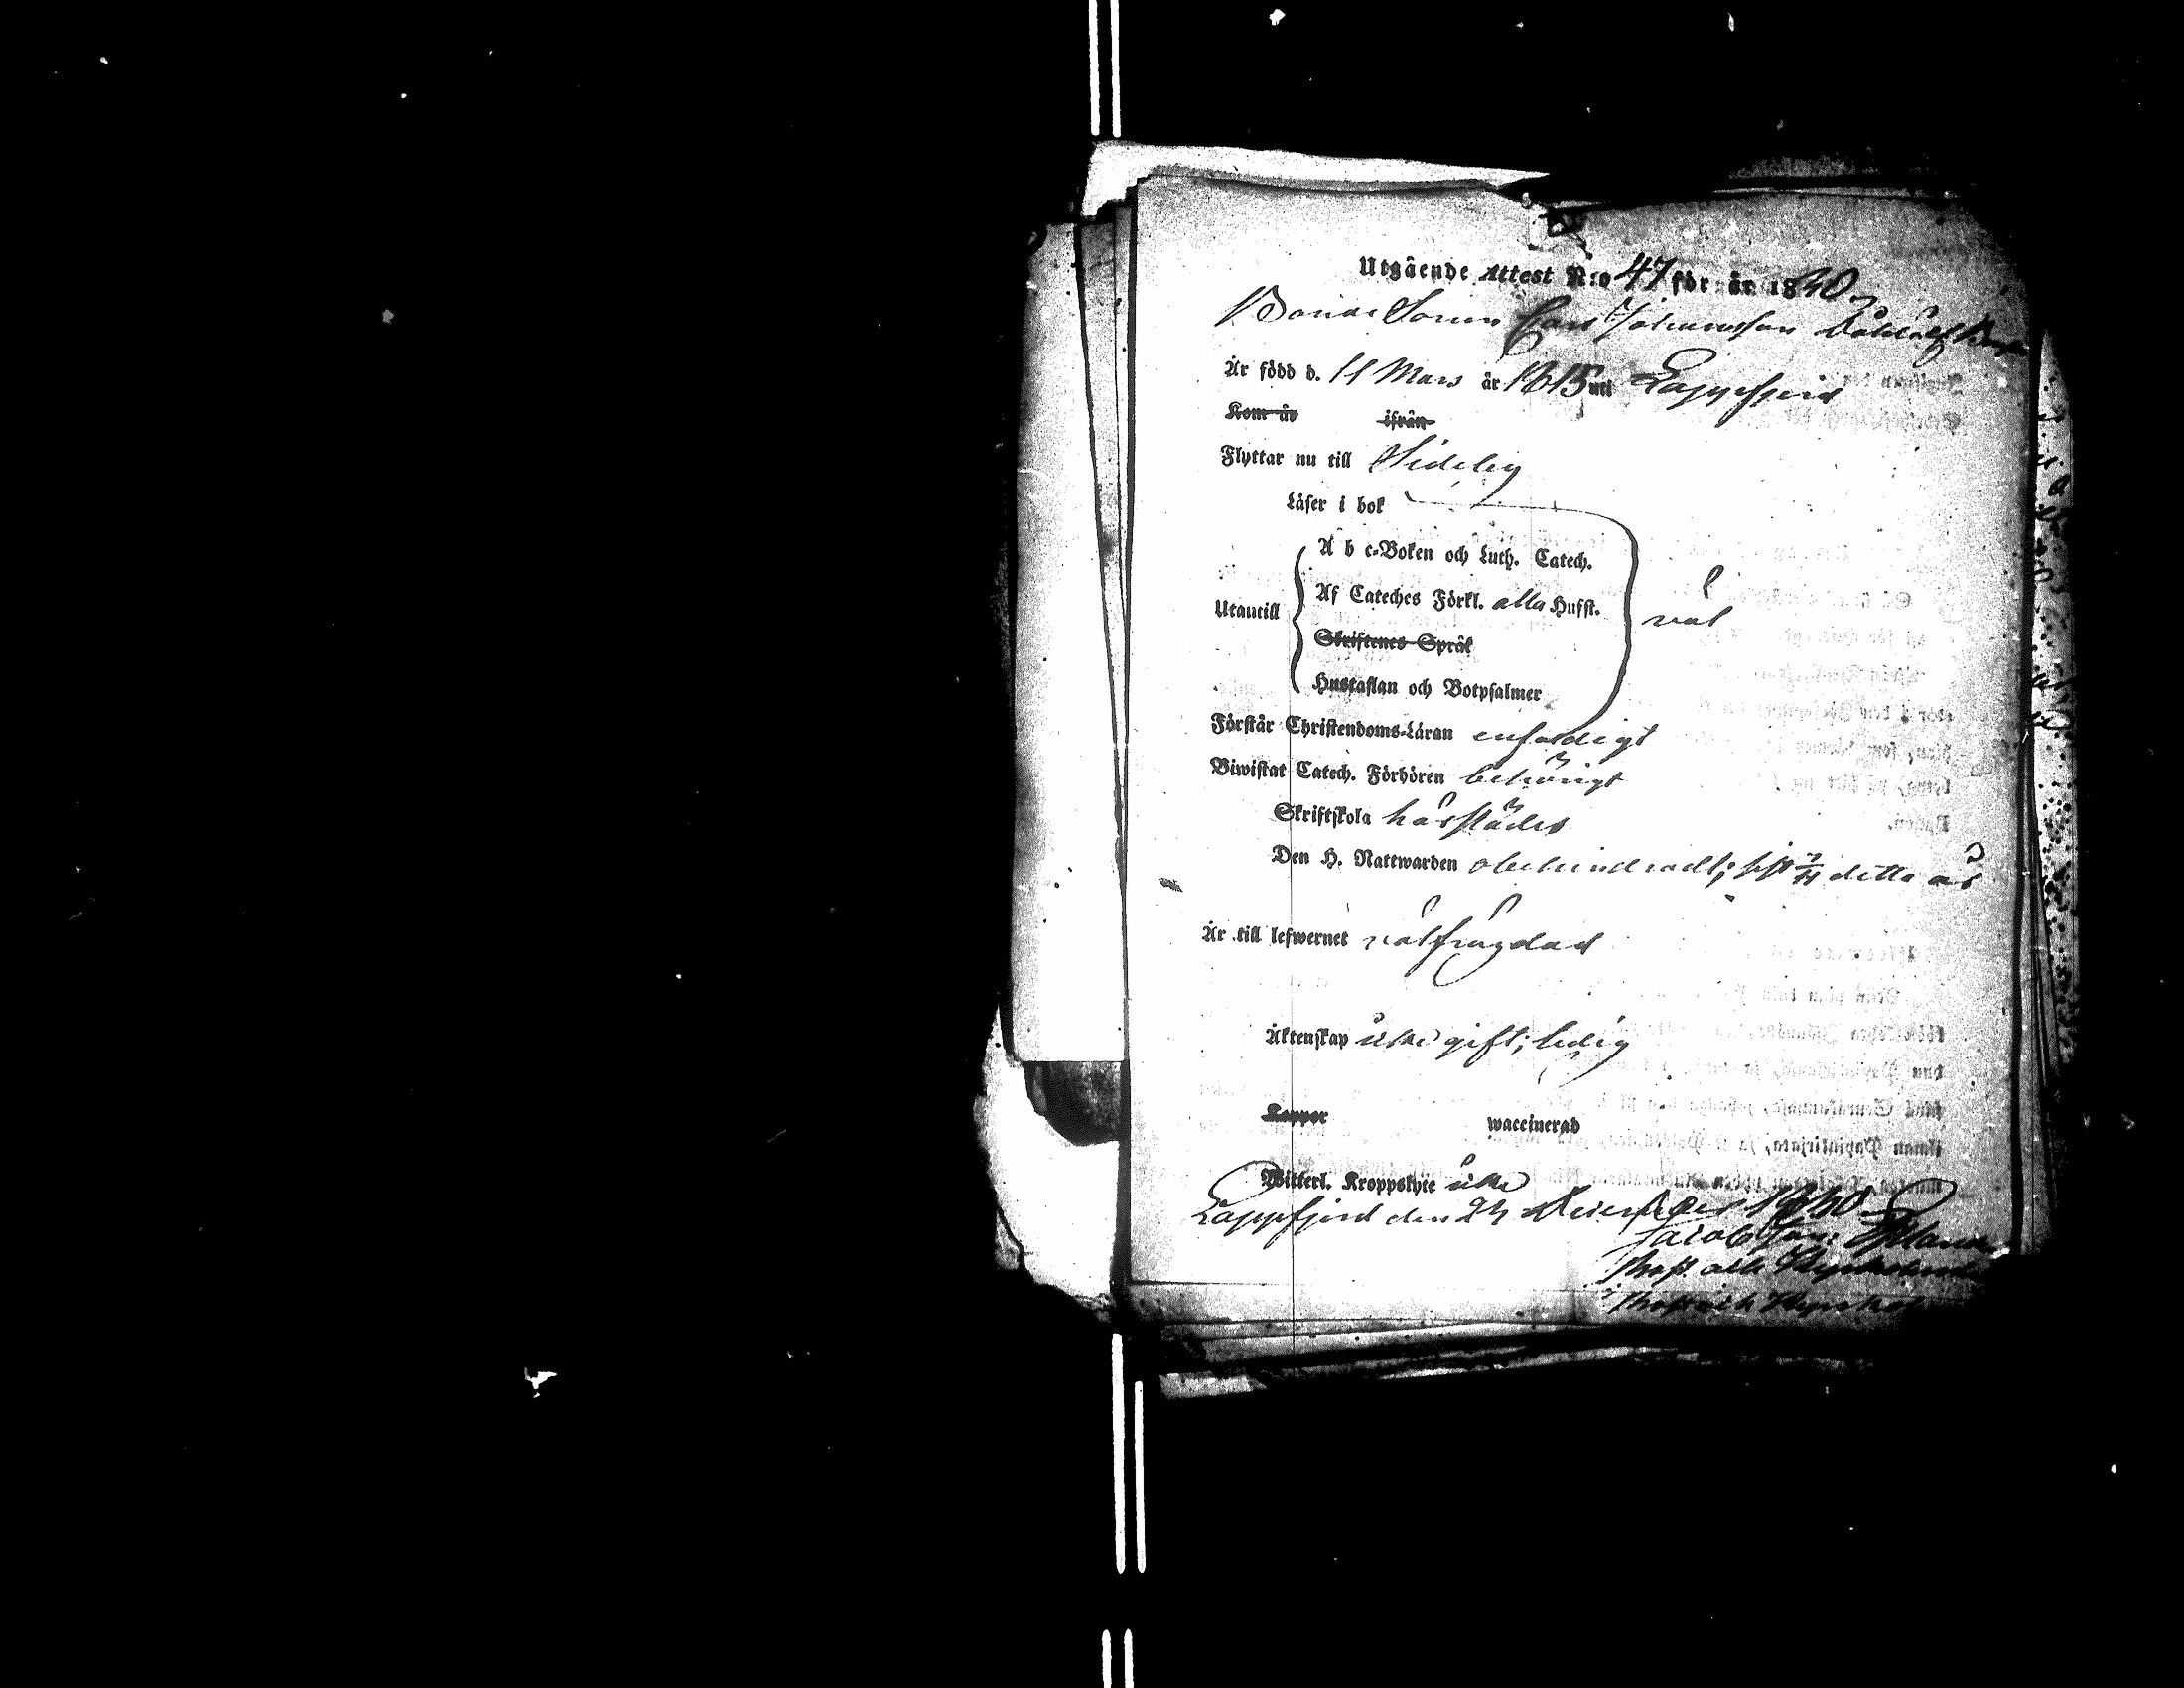 Utgående Attest N:o 47 för år 1840
Bonde Sonen Carl Johansson
Är född d. 11 Mars år 1815 uti Lappfjerd
Kom år ifrån
Flyttar nu till Sideby
Läser i bok
A b c-Boken och Luth. Catech.
Af Cateches Förkl. alla Hufst.
Utantill
väl
Skriftenes Språk
Hustaflan och Botpsalmer
Förstår Christendoms-Läran enfaldigt
Biwistat Catech. Förhören behörigt
Skriftskola härstädes
Den H. Nattwarden obehindradt; sist detta år
Är till lefwernet välfrägdad
Äktenskap icke gift; ledig
Koppor waccinerad
Witterl. Kroppslyte icke
Lappfjerd den 24 1840
Jacob
Prost och Kyrkoherde
Prost och